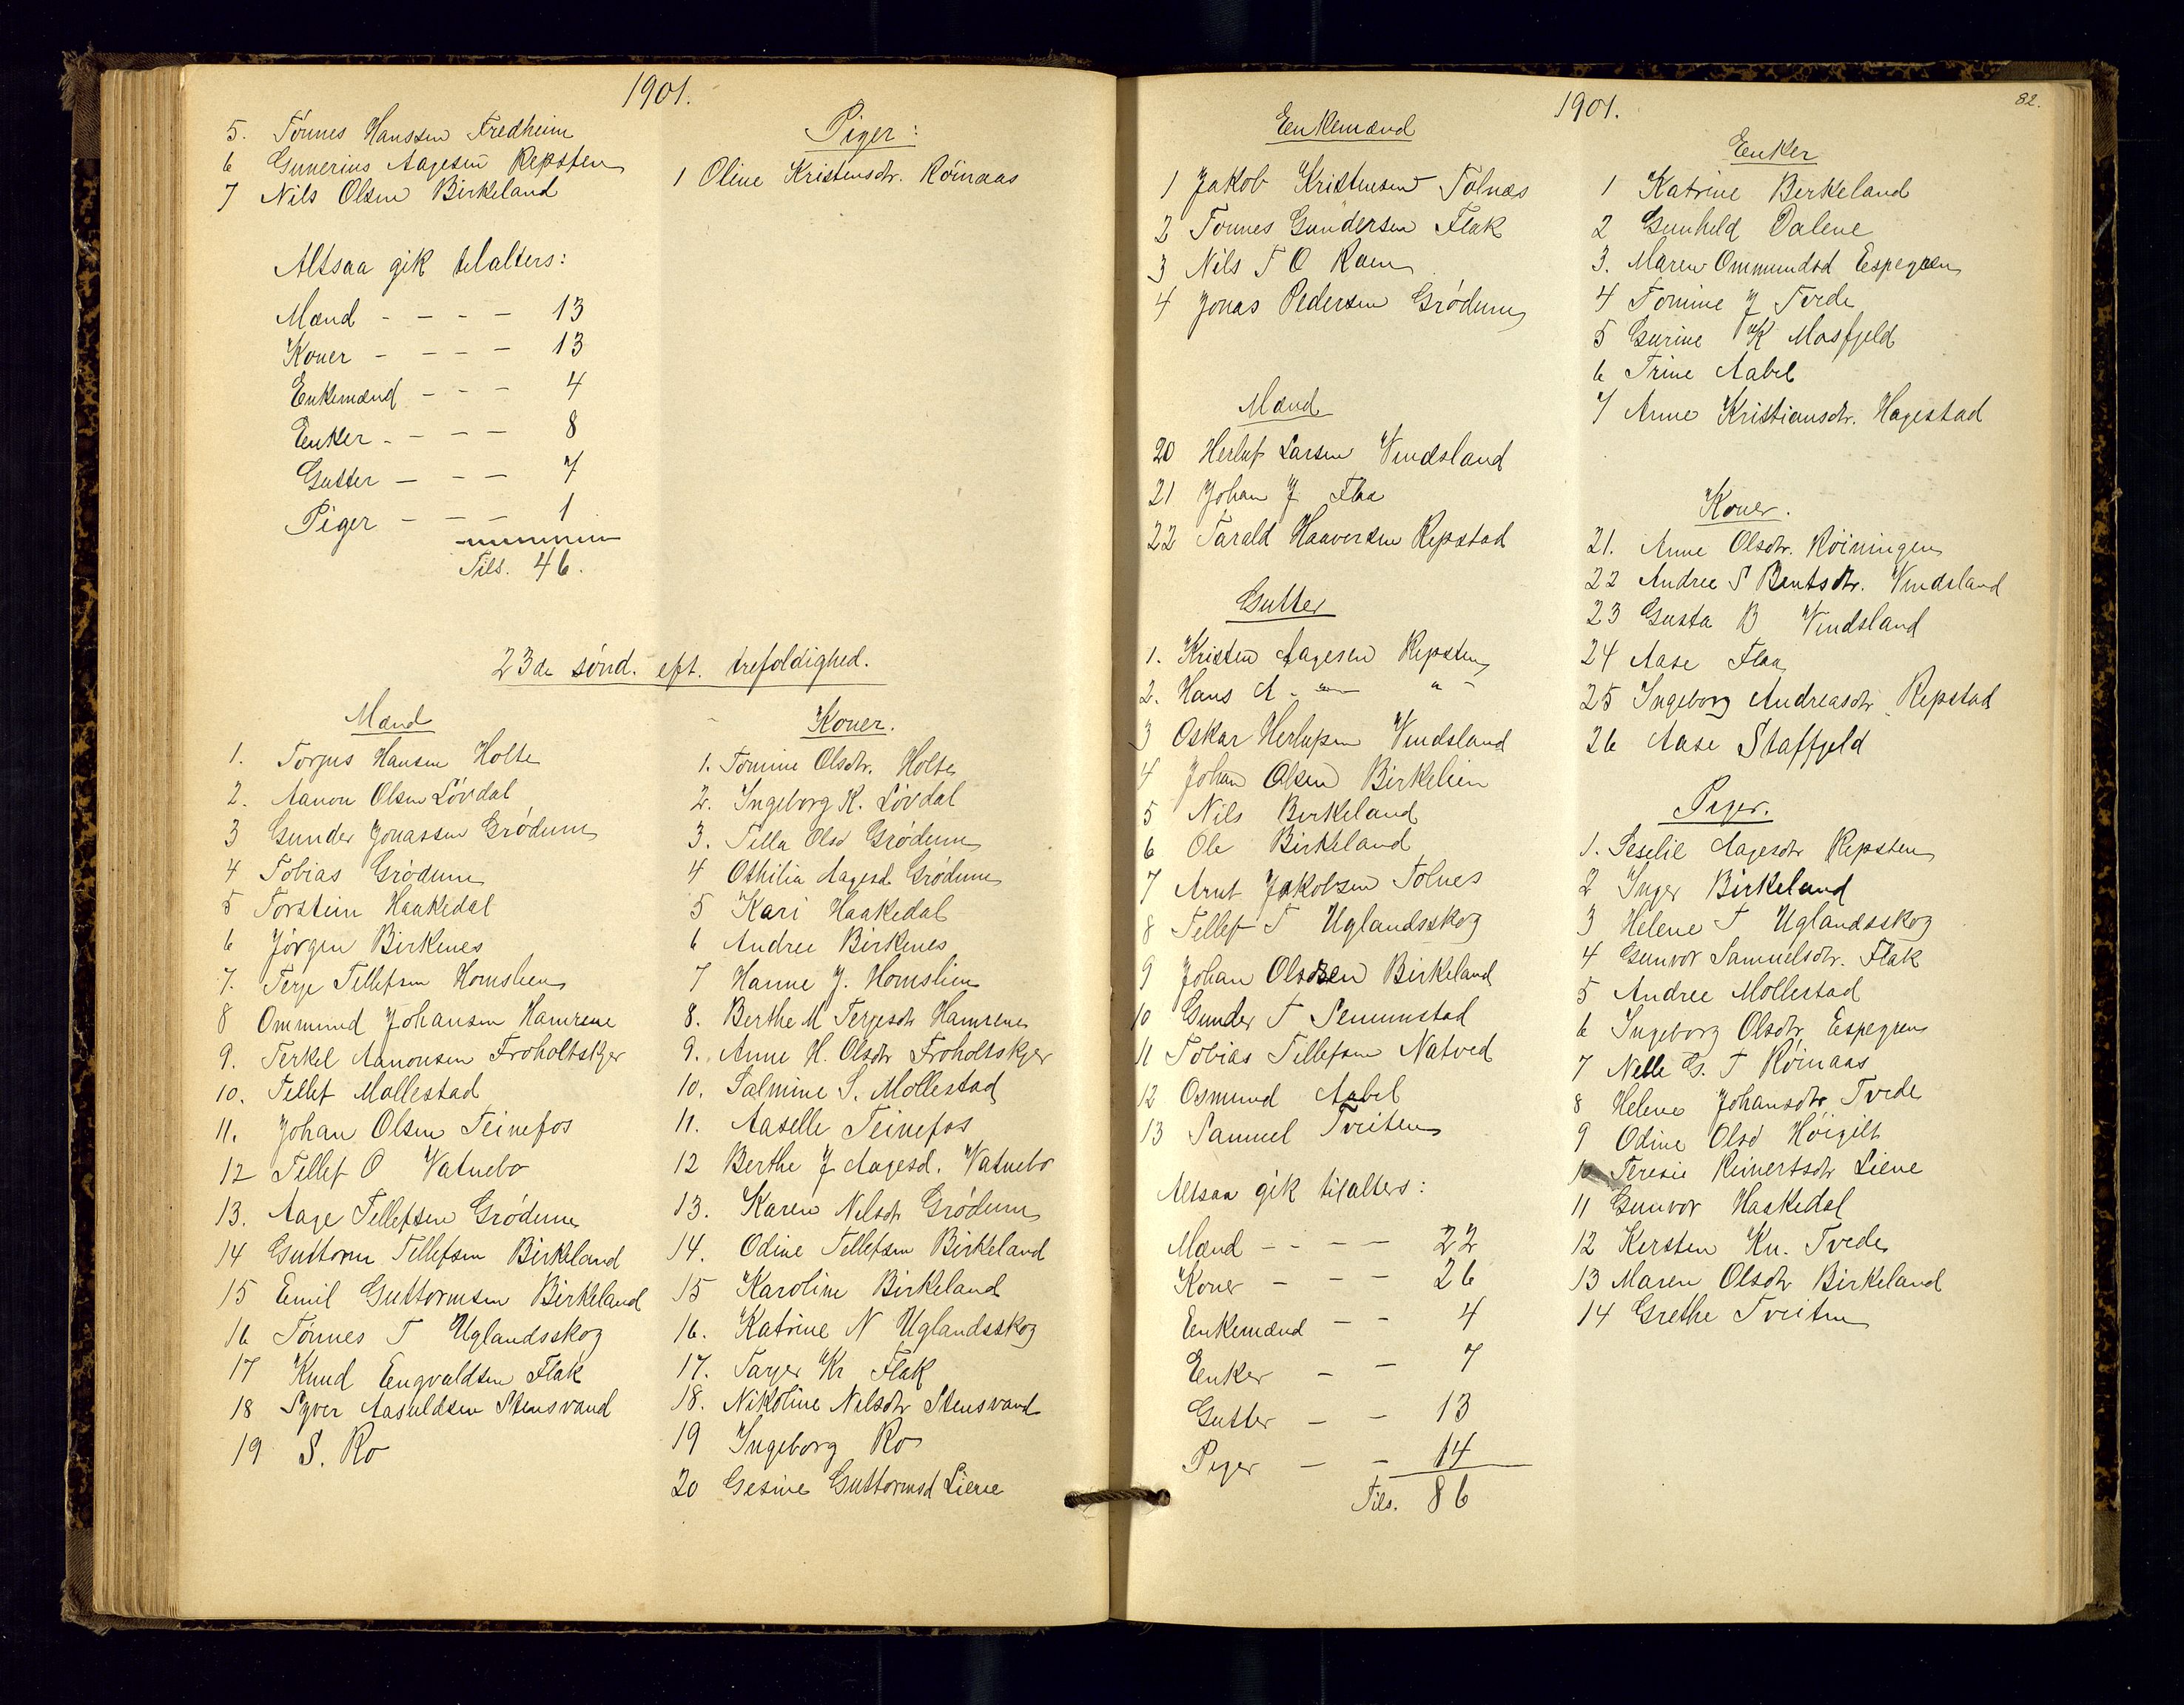 1901.
5. Tönnes Hanssen Fredheim
6 Gunerius Aagesen Repsten
7 Nils Olsen Birkeland
Piger:
1 Oline Kristensdr. Röinaas
Altsaa gik tilalters:
Mænd - - - - 13
Koner - - - - 13
Enkemænd - - - 4
Enker - - - - 8
Gutter - - - 7
Piger - - - 1
Tils. 46.
23de sönd. eft. trefoldighed.
Mænd
1. Torjus Hansen Holte
2. Aanon Olsen Lövdal
3 Gunder Jonassen Grödum
4 Tobias Grödum
5 Torstein Haakedal
6 Jörgen Birkenes
7. Terje Tellefsen Homslien
8 Ommund Johansen Hamrene
9. Terkel Aanonsen Froholtskjer
10. Tellef Mollestad
11. Johan Olsen Teinefos
12 Tellef O Vatnebo
13. Aage Tellefsen Grödum
14 Guttorm Tellefsen Birkeland
15 Emil Guttormsen Birkeland
16 Tönnes T Uglandsskog
17 Knud Engvaldsen Flak
18 Syver Aasuldsen Stensvand
19 S. Ro
Koner.
1. Tomine Olsdtr. Holte
2. Ingeborg K. Lövdal
3. Tella Olsd Grödum
4 Othilia Aagesd. Grödum
5 Kari Haakedal
6 Andree Birkenes
7 Hanne J. Homslien
8. Berthe M Terjesdr Hamrene
9. Anne H. Olsdtr Froholtskjer
10. Salmine S. Mollestad
11. Aaselle Teinefos
12 Berthe J Aagesd. Vatnebo
13. Karen Nilsdtr Grödum
14. Odine Tellefsen Birkeland
15 Karoline Birkeland
16. Katrine N Uglandsskog
17. Tarjer Kr Flak
18. Nikoline Nilsdtr Stensvand
19 Ingeborg Ro
20 Gesine Guttormsd Liene
1901.
82.
Enkemænd
1 Jakob Kristensen Tolnæs
2 Tönnes Gundersen Flak
3 Nils T O Raen
4 Jonas Pedersen Grödum
Mænd
20 Herluf Larsen Vindsland
21 Johan J Flaa
22 Tarald Haaversen Repstad
Gutter
1. Kristen Aagesen Repsten
2. Hans A - " - " -
3 Oskar Herlufsen Vindsland
4 Johan Olsen Birkelien
5 Nils Birkeland
6 Ole Birkeland
7 Arnt Jakobsen Tolnes
8 Tellef T Uglandsskog
9 Johan Olsen Birkeland
10 Gunder T Senumstad
11 Tobias Tellefsen Natved
12 Osmund Aabel
13 Samuel Tveiten
Altsaa gik tilalters:
Mænd - - - - 22
Koner - - - 26
Enkemænd - - 4
Enker - - 7
Gutter - - 13
Piger - - 14
Tils. 86
Enker
1 Katrine Berkeland
2 Gunhild Dalene
3. Maren Ommundsd Espegren
4 Tomine J Tvede
5 Gurine K Mosfjeld
6 Trine Aabel
7 Anne Kristiansdtr. Hagestad
Koner.
21. Anne Olsdtr. Röiningen
22 Andree S Bentsdtr. Vindsland
23 Gusta B Vindsland
24 Aase Flaa
25 Ingeborg Andreasdtr Repstad
26 Aase Staffjeld
Piger.
1. Seselie Aagesdtr Repsten
2 Inger Birkeland
3 Helene T Uglandsskog
4 Gunvor Samuelsdtr. Flak
5 Andree Mollestad
6 Ingeborg Olsdtr Espegren
7 Nelle G. T Röinaas
8 Helene Johansdtr Tvede
9 Odine Olsd Höigilt
10 Teresie Reinertsdtr Liene
11 Gunvor Haakedal
12 Kirsten Kn. Tvede
13 Maren Olsdtr Birkeland
14 Grethe Tveiten